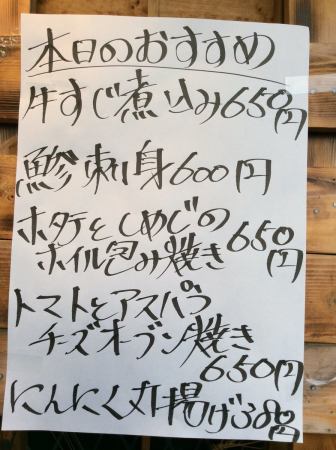 本日のおすすめ
牛すじ煮込み650円
鯵刺身600円
ホタテとしめじの
ホイル包み焼き 650円
トマトとアスパラ
チーズオーブン焼き
650円
にんにく丸揚げ380円